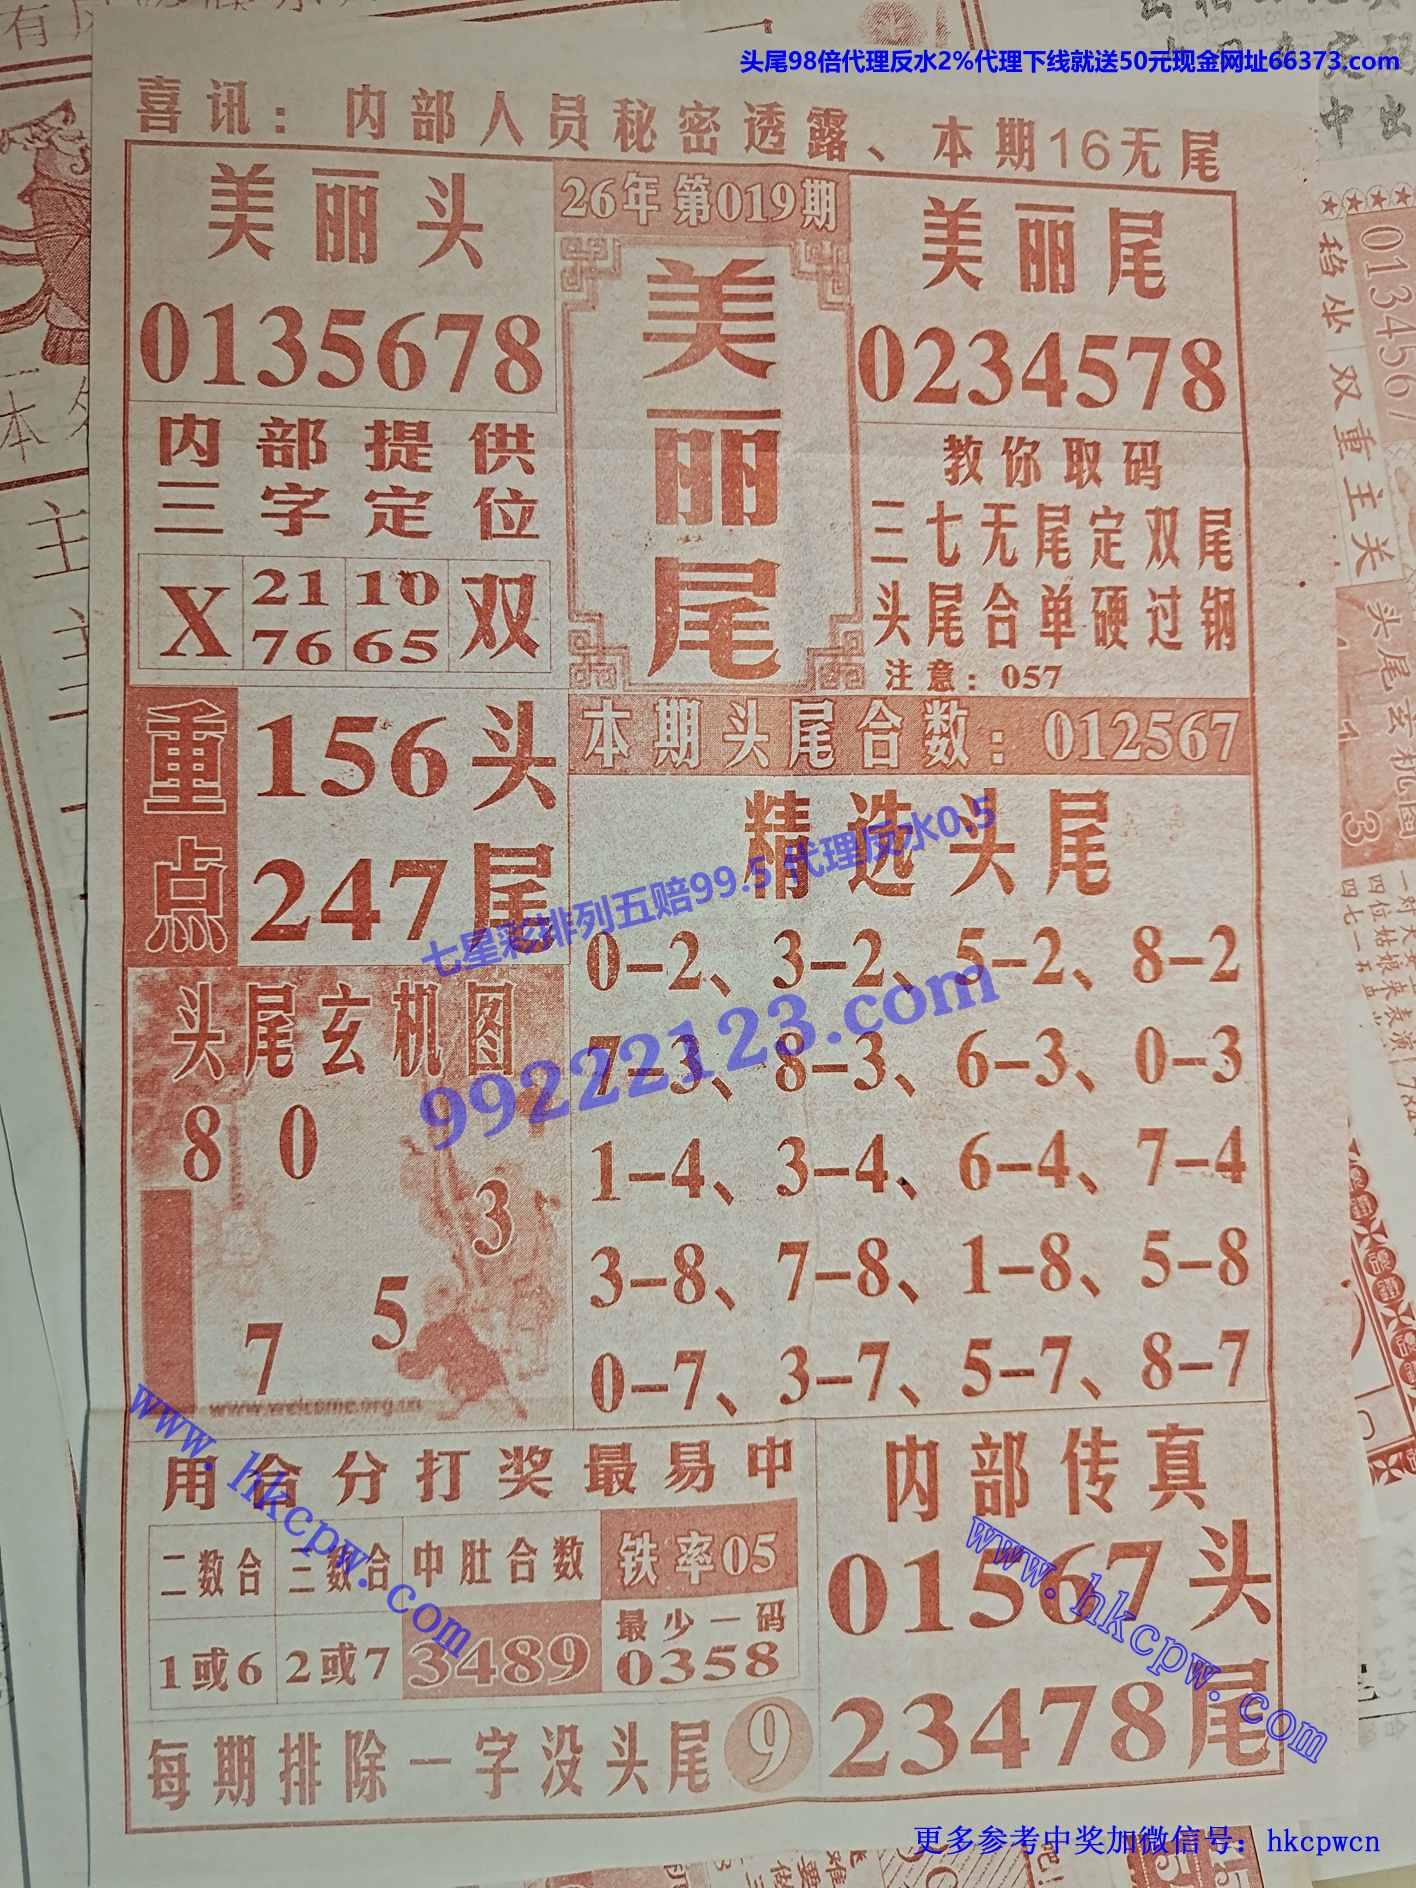 头尾98倍代理反水2%代理下线就送50元现金网址66373.com
喜讯：内部人员秘密透露、本期16无尾
美丽头
0135678
26年第019期
美丽尾
美丽尾
0234578
内部提供
三字定位
X 21 10 双
76 65
教你取码
三七无尾定双尾
头尾合单硬过钢
注意：057
重点
156头
247尾
本期头尾合数：012567
精选头尾
0-2、3-2、5-2、8-2
7-3、8-3、6-3、0-3
1-4、3-4、6-4、7-4
3-8、7-8、1-8、5-8
0-7、3-7、5-7、8-7
七星彩排列五赔99.5 代理反水0.5
99222123.com
头尾玄机图
8 0
3
5
7
用合分打奖最易中
二数合 三数合 中肚合数 铁率05
1或6 2或7 3489 最少一码
0358
每期排除一字没头尾 9
内部传真
01567头
23478尾
www.hkcpw.com
www.hkcpw.com
更多参考中奖加微信号：hkcpwcn
0134567
双重主关
头尾玄机图